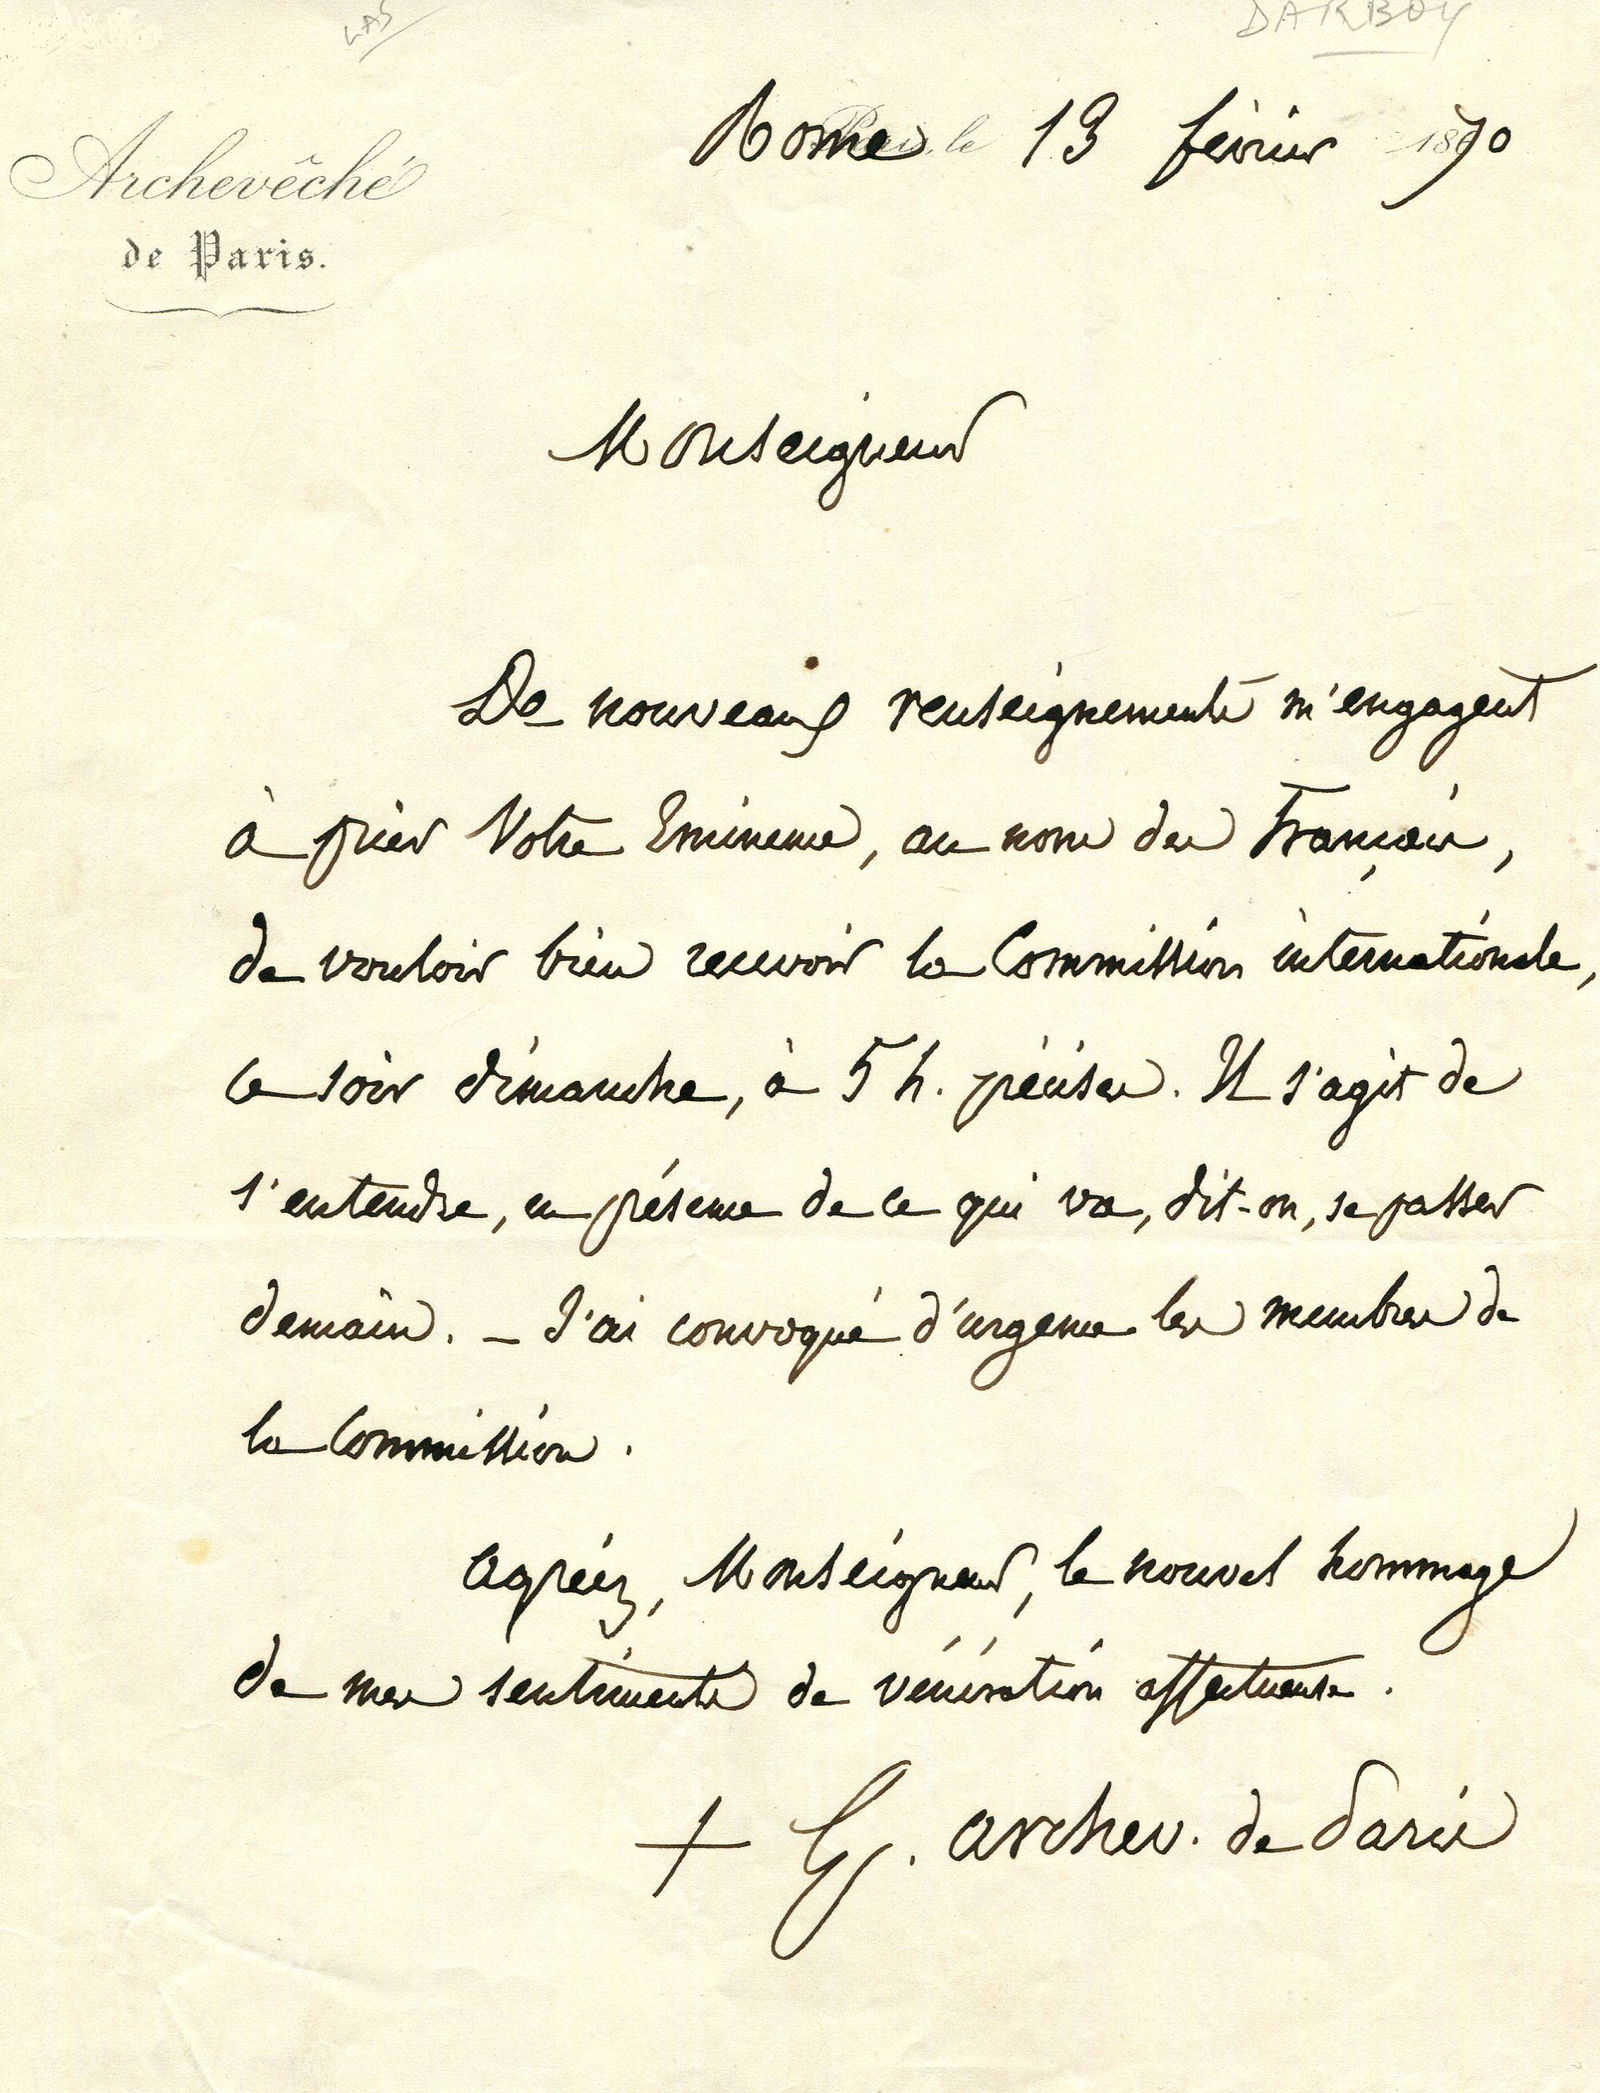 LAS
DARBOY
Archevêché
de Paris.
Rome le 13 février 1870
Monseigneur
De nouveaux renseignements m'engagent
à prier Votre Eminence, au nom des Français,
de vouloir bien recevoir la Commission internationale,
ce soir dimanche, à 5 h. précises. Il s'agit de
s'entendre, en présence de ce qui va, dit-on, se passer
demain. — J'ai convoqué d'urgence les membres de
la Commission.
Agréez, Monseigneur, le nouvel hommage
de mes sentiments de vénération affectueuse.
+ G. archev. de Paris